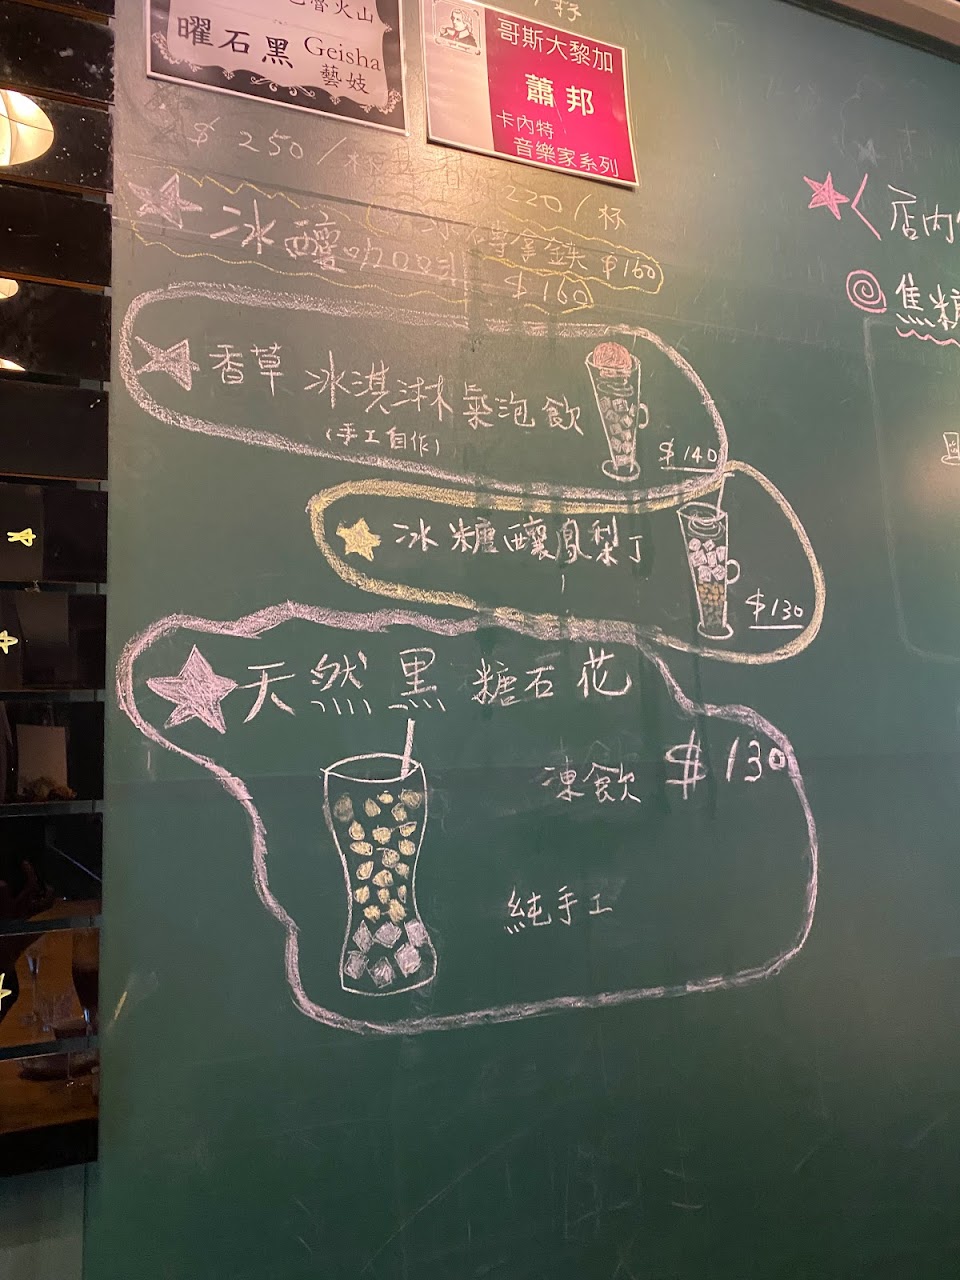 巴魯火山
曜石黑 Geisha
藝妓
哥斯大黎加
蕭邦
卡內特
音樂家系列
/杯
$250/杯
220/杯
冰釀咖啡
拿鐵 $160
$160
香草 冰淇淋氣泡飲
(手工自作)
$140
冰糖釀鳳梨丁
$130
天然黑糖石花
凍飲 $130
純手工
店內
焦糖